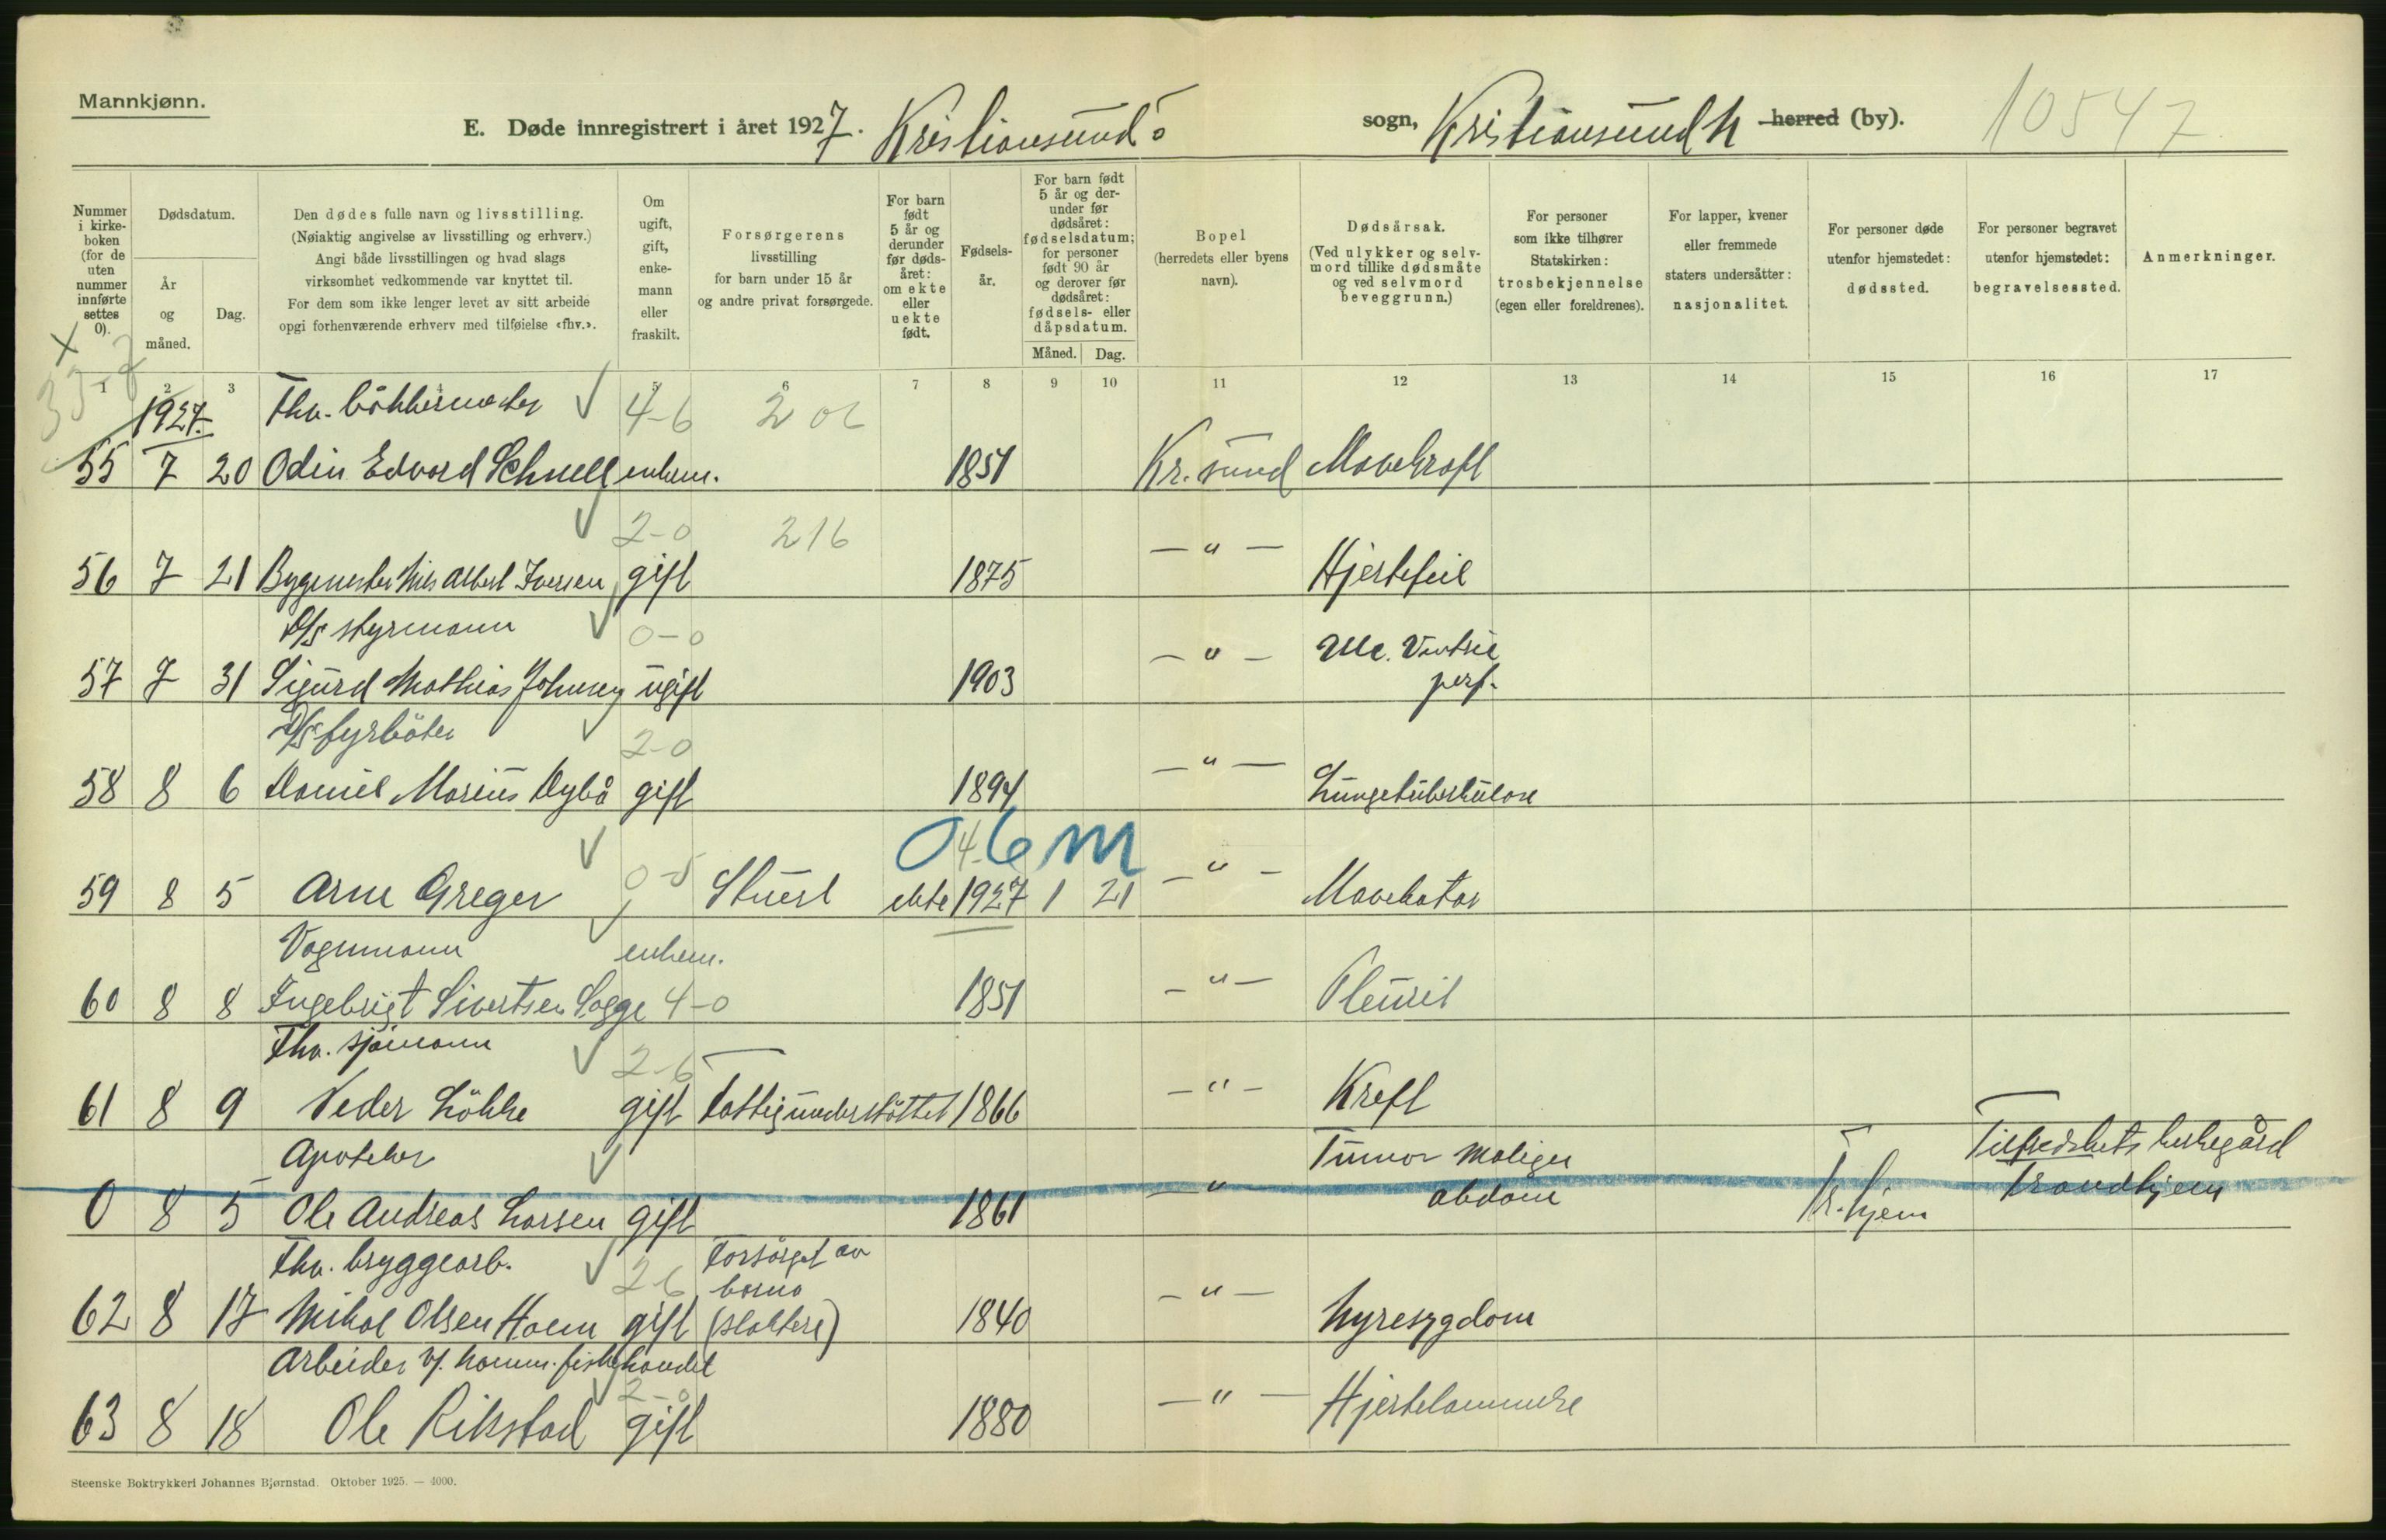 Mannkjønn.
E. Døde innregistrert i året 1927. Kristiansunds sogn, Kristiansund N herred (by). 10547
Nummer i kirkeboken (for de uten nummer innførte settes 0).
Dødsdatum.
År og måned.
Dag.
Den dødes fulle navn og livsstilling.
(Nøiaktig angivelse av livsstilling og erhverv.)
Angi både livsstillingen og hvad slags
virksomhet vedkommende var knyttet til.
For dem som ikke lenger levet av sitt arbeide
opgi forhenværende erhverv med tilføielse «fhv.».
Om ugift, gift, enkemann eller fraskilt.
Forsørgerens livsstilling
for barn under 15 år
og andre privat forsørgede.
For barn født 5 år og derunder før dødsåret: om ekte eller uekte født.
Fødselsår.
For barn født 5 år og derunder før dødsåret: fødselsdatum; for personer født 90 år og derover før dødsåret: fødsels- eller dåpsdatum.
Måned. Dag.
Bopel
(herredets eller byens navn).
Dødsårsak.
(Ved ulykker og selvmord tillike dødsmåte og ved selvmord beveggrunn.)
For personer som ikke tilhører Statskirken: trosbekjennelse (egen eller foreldrenes).
For lapper, kvener eller fremmede staters undersåtter: nasjonalitet.
For personer døde utenfor hjemstedet: dødssted.
For personer begravet utenfor hjemstedet: begravelsessted.
Anmerkninger.
1 2 3 4 5 6 7 8 9 10 11 12 13 14 15 16 17
1927. Fhv. bökkermester 4-6
55 7 20 Odin Edvard Schnell enkem. 1851 Kr.sund Mavekraft
2-0 216
56 7 21 Bygmester Nils Albert Iversen gift 1875 — " — Hjertefeil
D/S styrmann 0-0
57 7 31 Sigurd Mathias Johnsen ugift 1903 — " — Ulc. Ventric perf.
D/S fyrböter 2-0
58 8 6 Daniel Marius Dybå gift 1894 — " — Lungetuberkulose
0 4-6 m
59 8 5 Arne Greger 0-5 Stuert ekte 1927 1 21 — " — Mavekatar
Vognmann enkem.
60 8 8 Ingebrigt Sivertsen Sogge 4-0 1851 — " — Pleurit
Fhv. sjömann 2-6
61 8 9 Peder Lökke gift Fattigunderstöttet 1866 — " — Kreft
Apoteker Tumor malign Tilfredshets kirkegård
0 8 5 Ole Andreas Larsen gift 1861 — " abdom Tr.hjem Trondhjem
Fhv. bryggearb. 2-6 Forsörget av barna
62 8 17 Mikal Olsen Holm gift 1840 — " — Nyresygdom
Arbeider v/ komm. fiskehandel 2-0
63 8 18 Ole Rikstad gift 1880 — " — Hjertelammelse
Steenske Boktrykkeri Johannes Bjørnstad. Oktober 1925. — 4000.